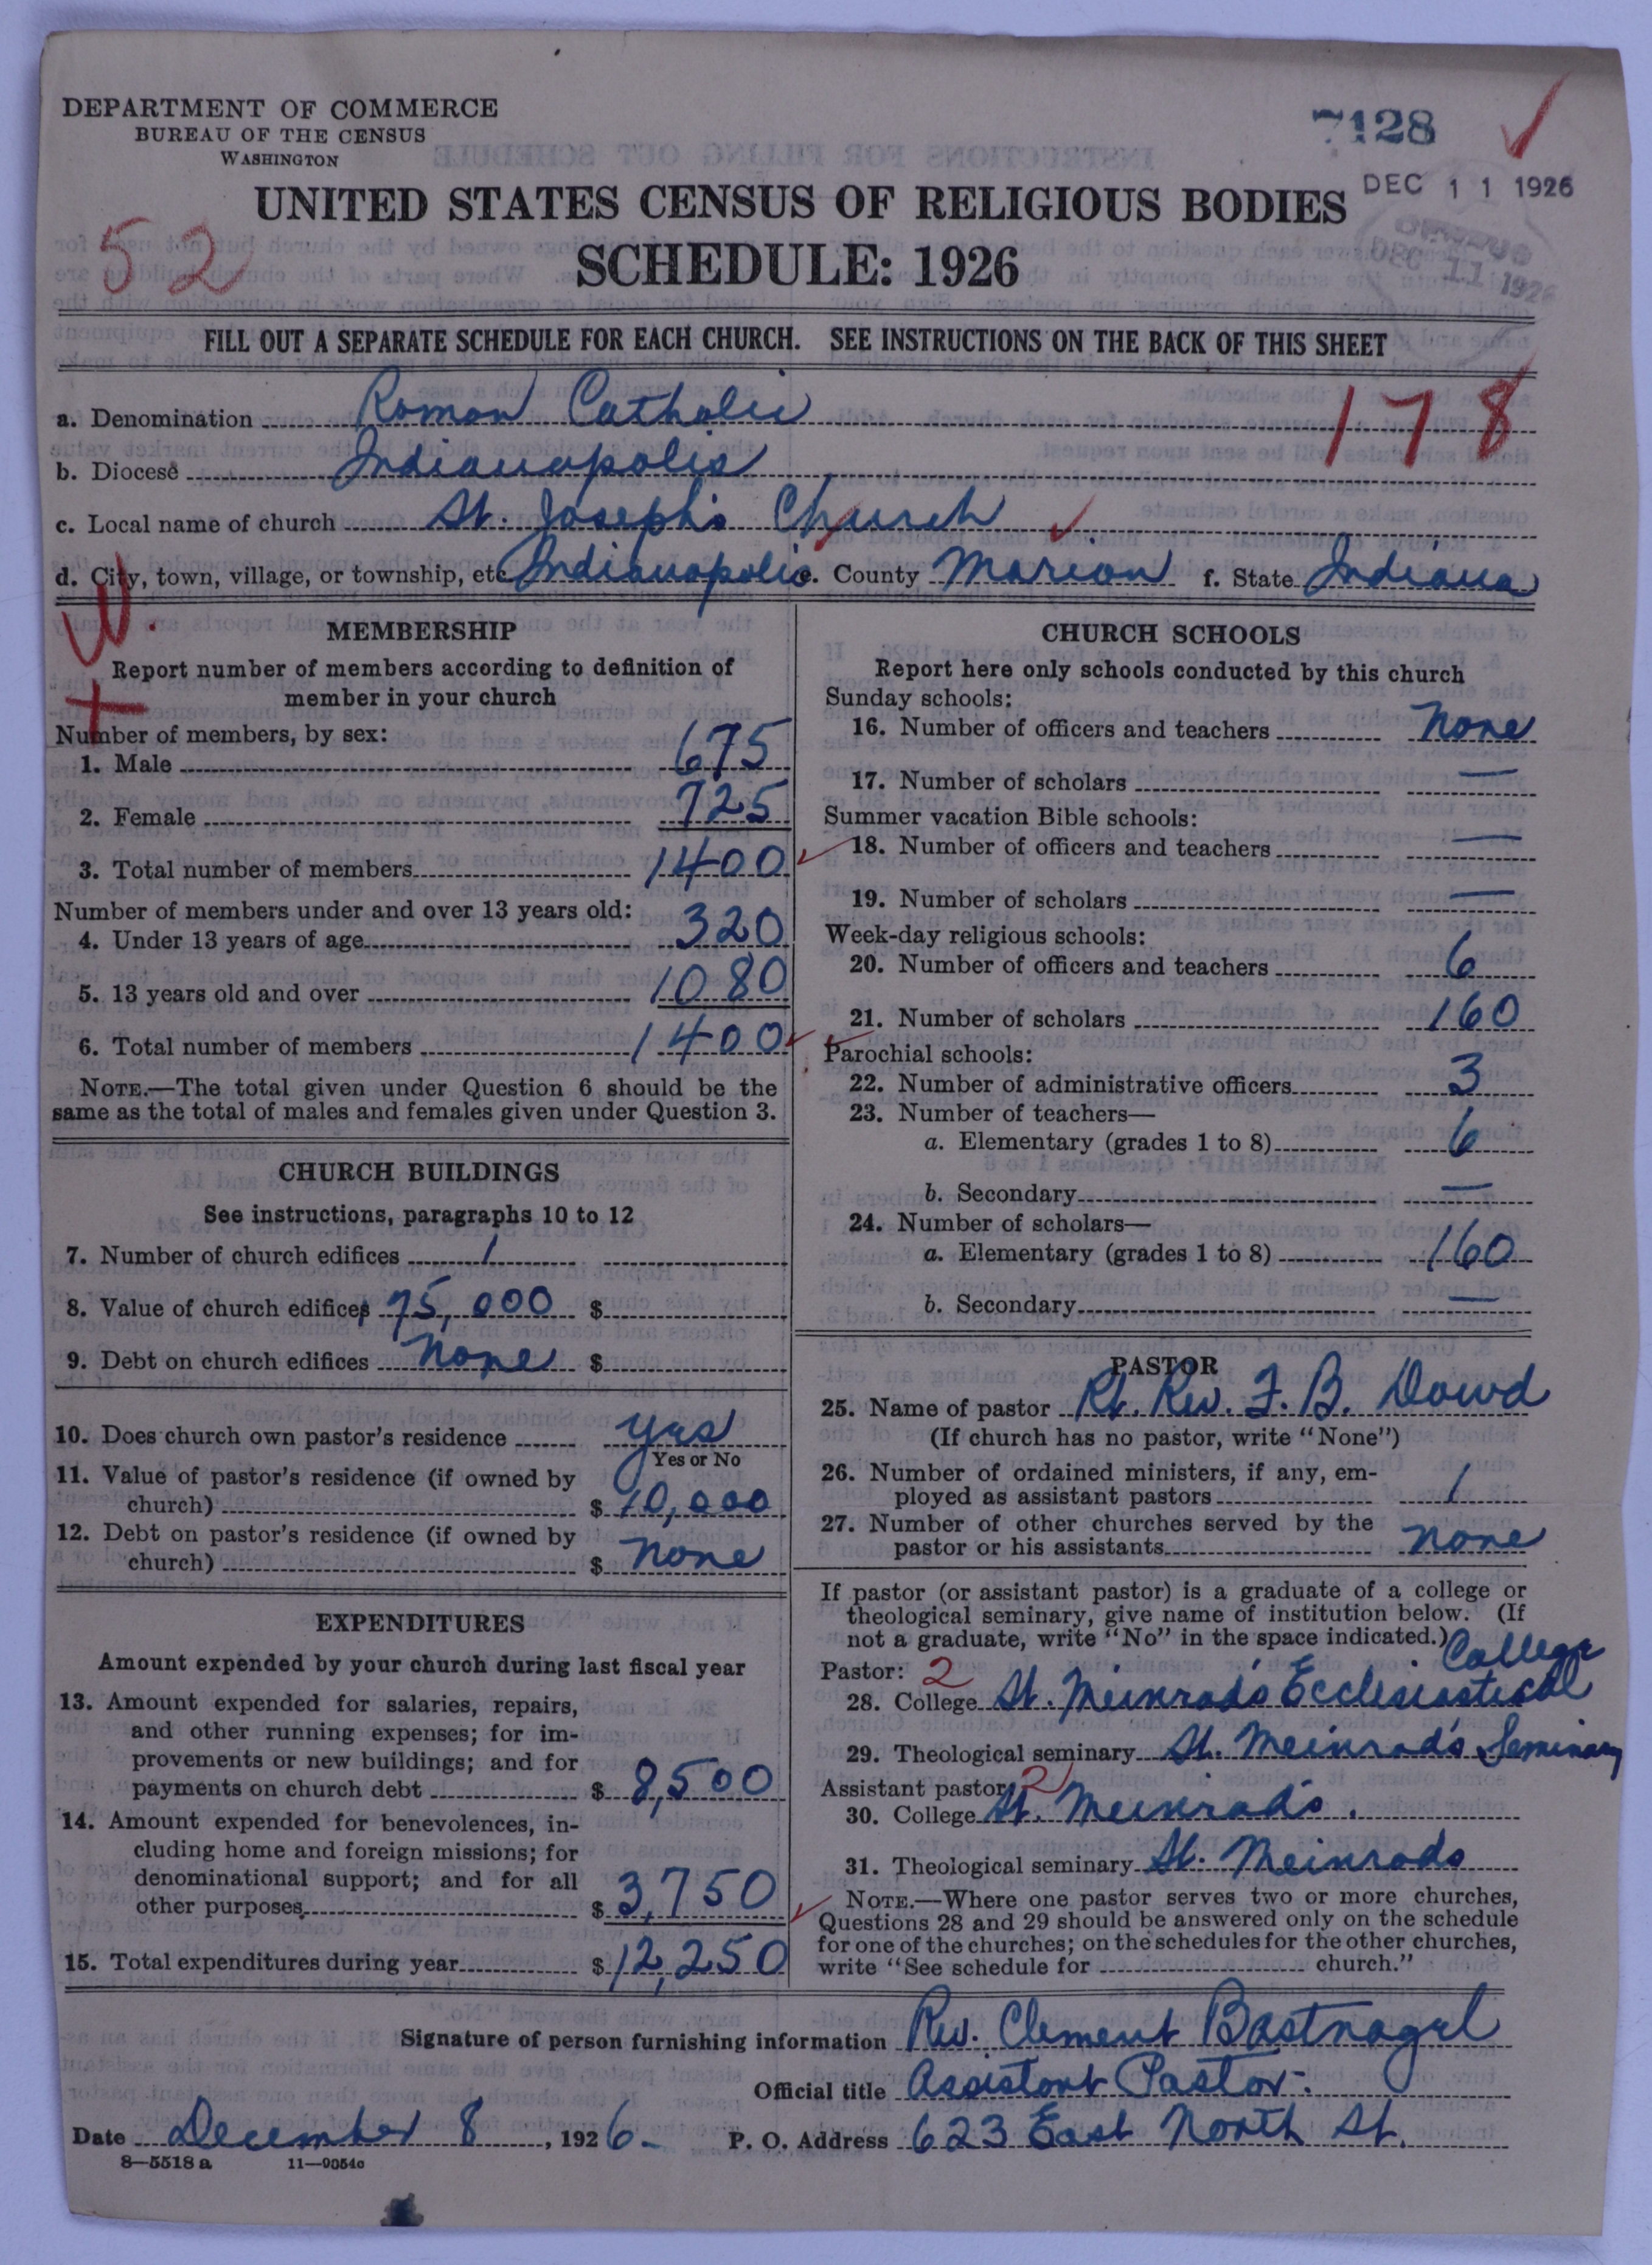 DEPARTMENT OF COMMERCE
BUREAU OF THE CENSUS
WASHINGTON
7128
DEC 11 1926
CENSUS
DEC 11 1926
UNITED STATES CENSUS OF RELIGIOUS BODIES
52
SCHEDULE: 1926
FILL OUT A SEPARATE SCHEDULE FOR EACH CHURCH. SEE INSTRUCTIONS ON THE BACK OF THIS SHEET
178
a. Denomination Roman Catholic
b. Diocese Indianapolis
c. Local name of church St. Joseph's Church
d. City, town, village, or township, etc. Indianapolis e. County Marion f. State Indiana
MEMBERSHIP
Report number of members according to definition of
member in your church
Number of members, by sex:
1. Male 675
2. Female 725
3. Total number of members 1400
Number of members under and over 13 years old:
4. Under 13 years of age 320
5. 13 years old and over 1080
6. Total number of members 1400
NOTE.—The total given under Question 6 should be the
same as the total of males and females given under Question 3.
CHURCH BUILDINGS
See instructions, paragraphs 10 to 12
7. Number of church edifices 1
8. Value of church edifices 75,000 $
9. Debt on church edifices None $
10. Does church own pastor's residence yes
Yes or No
11. Value of pastor's residence (if owned by
church) $ 10,000
12. Debt on pastor's residence (if owned by
church) $ None
EXPENDITURES
Amount expended by your church during last fiscal year
13. Amount expended for salaries, repairs,
and other running expenses; for im-
provements or new buildings; and for
payments on church debt $ 8,500
14. Amount expended for benevolences, in-
cluding home and foreign missions; for
denominational support; and for all
other purposes $ 3,750
15. Total expenditures during year $ 12,250
CHURCH SCHOOLS
Report here only schools conducted by this church
Sunday schools:
16. Number of officers and teachers None
17. Number of scholars —
Summer vacation Bible schools:
18. Number of officers and teachers —
19. Number of scholars —
Week-day religious schools:
20. Number of officers and teachers 6
21. Number of scholars 160
Parochial schools:
22. Number of administrative officers 3
23. Number of teachers—
a. Elementary (grades 1 to 8) 6
b. Secondary —
24. Number of scholars—
a. Elementary (grades 1 to 8) 160
b. Secondary —
PASTOR
25. Name of pastor Rt. Rev. F. B. Dowd
(If church has no pastor, write "None")
26. Number of ordained ministers, if any, em-
ployed as assistant pastors 1
27. Number of other churches served by the
pastor or his assistants None
If pastor (or assistant pastor) is a graduate of a college or
theological seminary, give name of institution below. (If
not a graduate, write "No" in the space indicated.)
Pastor: 2 College
28. College St. Meinrad's Ecclesiastical
29. Theological seminary St. Meinrad's Seminary
Assistant pastor: 2
30. College St. Meinrad's.
31. Theological seminary St. Meinrads
NOTE.—Where one pastor serves two or more churches,
Questions 28 and 29 should be answered only on the schedule
for one of the churches; on the schedules for the other churches,
write "See schedule for church."
Signature of person furnishing information Rev. Clement Bastnagel
Official title Assistant Pastor.
Date December 8, 1926 P. O. Address 623 East North St.
8—5518 a 11—9054c